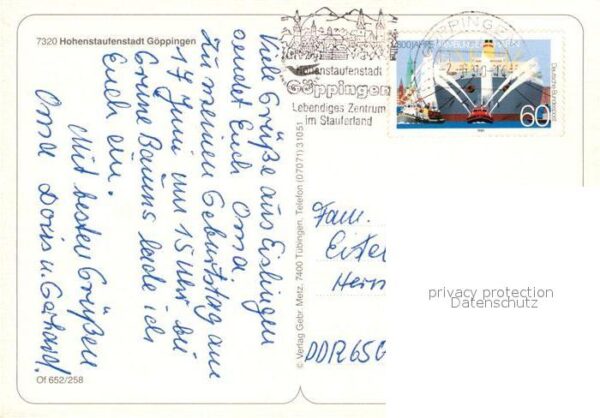 7320 Hohenstaufenstadt Göppingen
Viele Grüße aus Eislingen
sendet Euch Oma
Zu meinen Geburtstag am
17 Juni um 15 Uhr bei
Grüne Baums lade ich
Euch ein.
Mit besten Grüßen
Oma Doris u. Gerhard.
Of 652/258
© Verlag Gebr. Metz, 7400 Tübingen, Telefon (07071) 31051
Hohenstaufenstadt
Göppingen
Lebendiges Zentrum
im Stauferland
GÖPPINGEN
800 JAHRE HAMBURGER HAFEN
Deutsche Bundespost
60
Fam.
DDR 65
privacy protection
Datenschutz